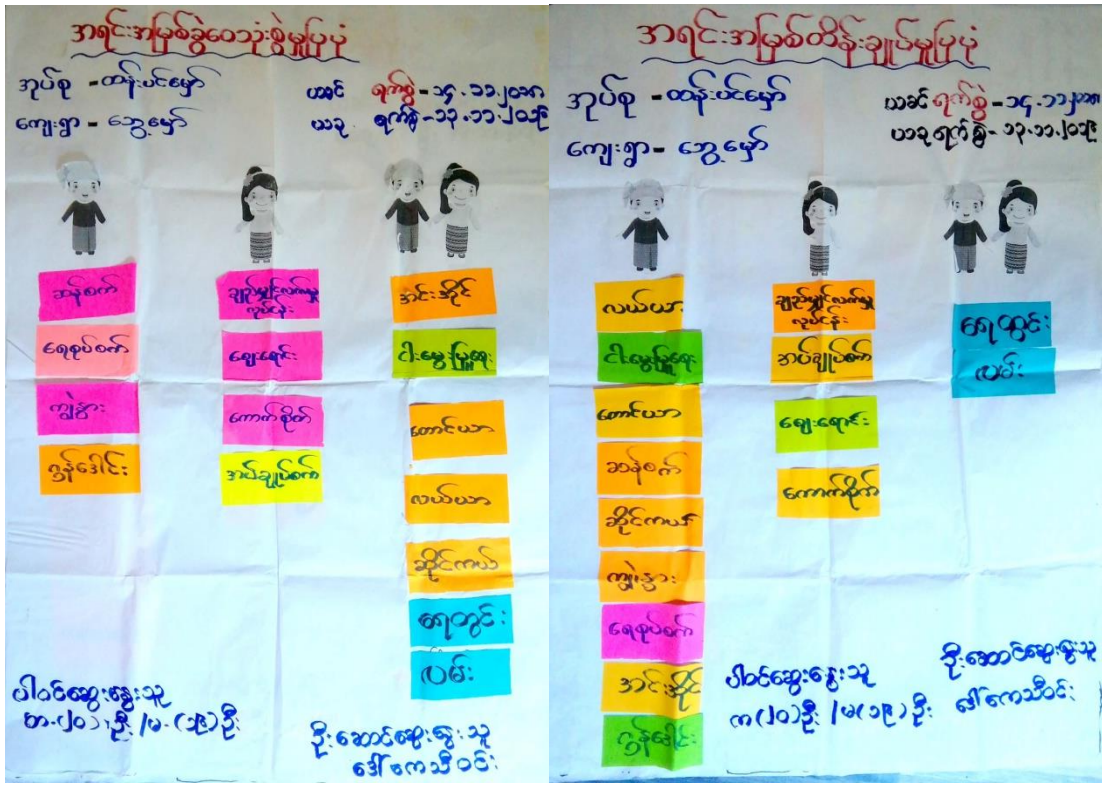 အရင်းအမြစ်ခွဲဝေသုံးစွဲမှုပြပုံ
အုပ်စု - ထန်းပင်မှော်
ကျေးရွာ - ဘွေ့မှော်
ယခင် ရက်စွဲ - ၁၄.၁၁.၂၀၁၈
ယခု ရက်စွဲ - ၁၃.၁၁.၂၀၁၉
ဆန်စက်
ရေစုပ်စက်
ကျွဲနွား
ဂွန်ဒေါင်း
ချည်မျှင်လက်မှု
လုပ်ငန်း
ဈေးရောင်း
ကောက်စိုက်
အပ်ချုပ်စက်
အင်းအိုင်
ငါးမွေးမြူရေး
တောင်ယာ
လယ်ယာ
ဆိုင်ကယ်
ရေတွင်း
လမ်း
ပါဝင်ဆွေးနွေးသူ
ကျား-(၂၀)ဦး/မ-(၁၉)ဦး
ဦးဆောင်ဆွေးနွေးသူ
ဒေါ်ကေသီဝင်း
အရင်းအမြစ်ထိန်းချုပ်မှုပြပုံ
အုပ်စု - ထန်းပင်မှော်
ကျေးရွာ - ဘွေ့မှော်
ယခင် ရက်စွဲ - ၁၄.၁၁.၂၀၁၈
ယခု ရက်စွဲ - ၁၃.၁၁.၂၀၁၉
လယ်ယာ
ငါးမွေးမြူရေး
တောင်ယာ
ဆန်စက်
ဆိုင်ကယ်
ကျွဲနွား
ရေစုပ်စက်
အင်းအိုင်
ဂွန်ဒေါင်း
ချည်မျှင်လက်မှု
လုပ်ငန်း
အပ်ချုပ်စက်
ဈေးရောင်း
ကောက်စိုက်
ရေတွင်း
လမ်း
ပါဝင်ဆွေးနွေးသူ
က(၂၀)ဦး /မ(၁၉)ဦး
ဦးဆောင်ဆွေးနွေးသူ
ဒေါ်ကေသီဝင်း